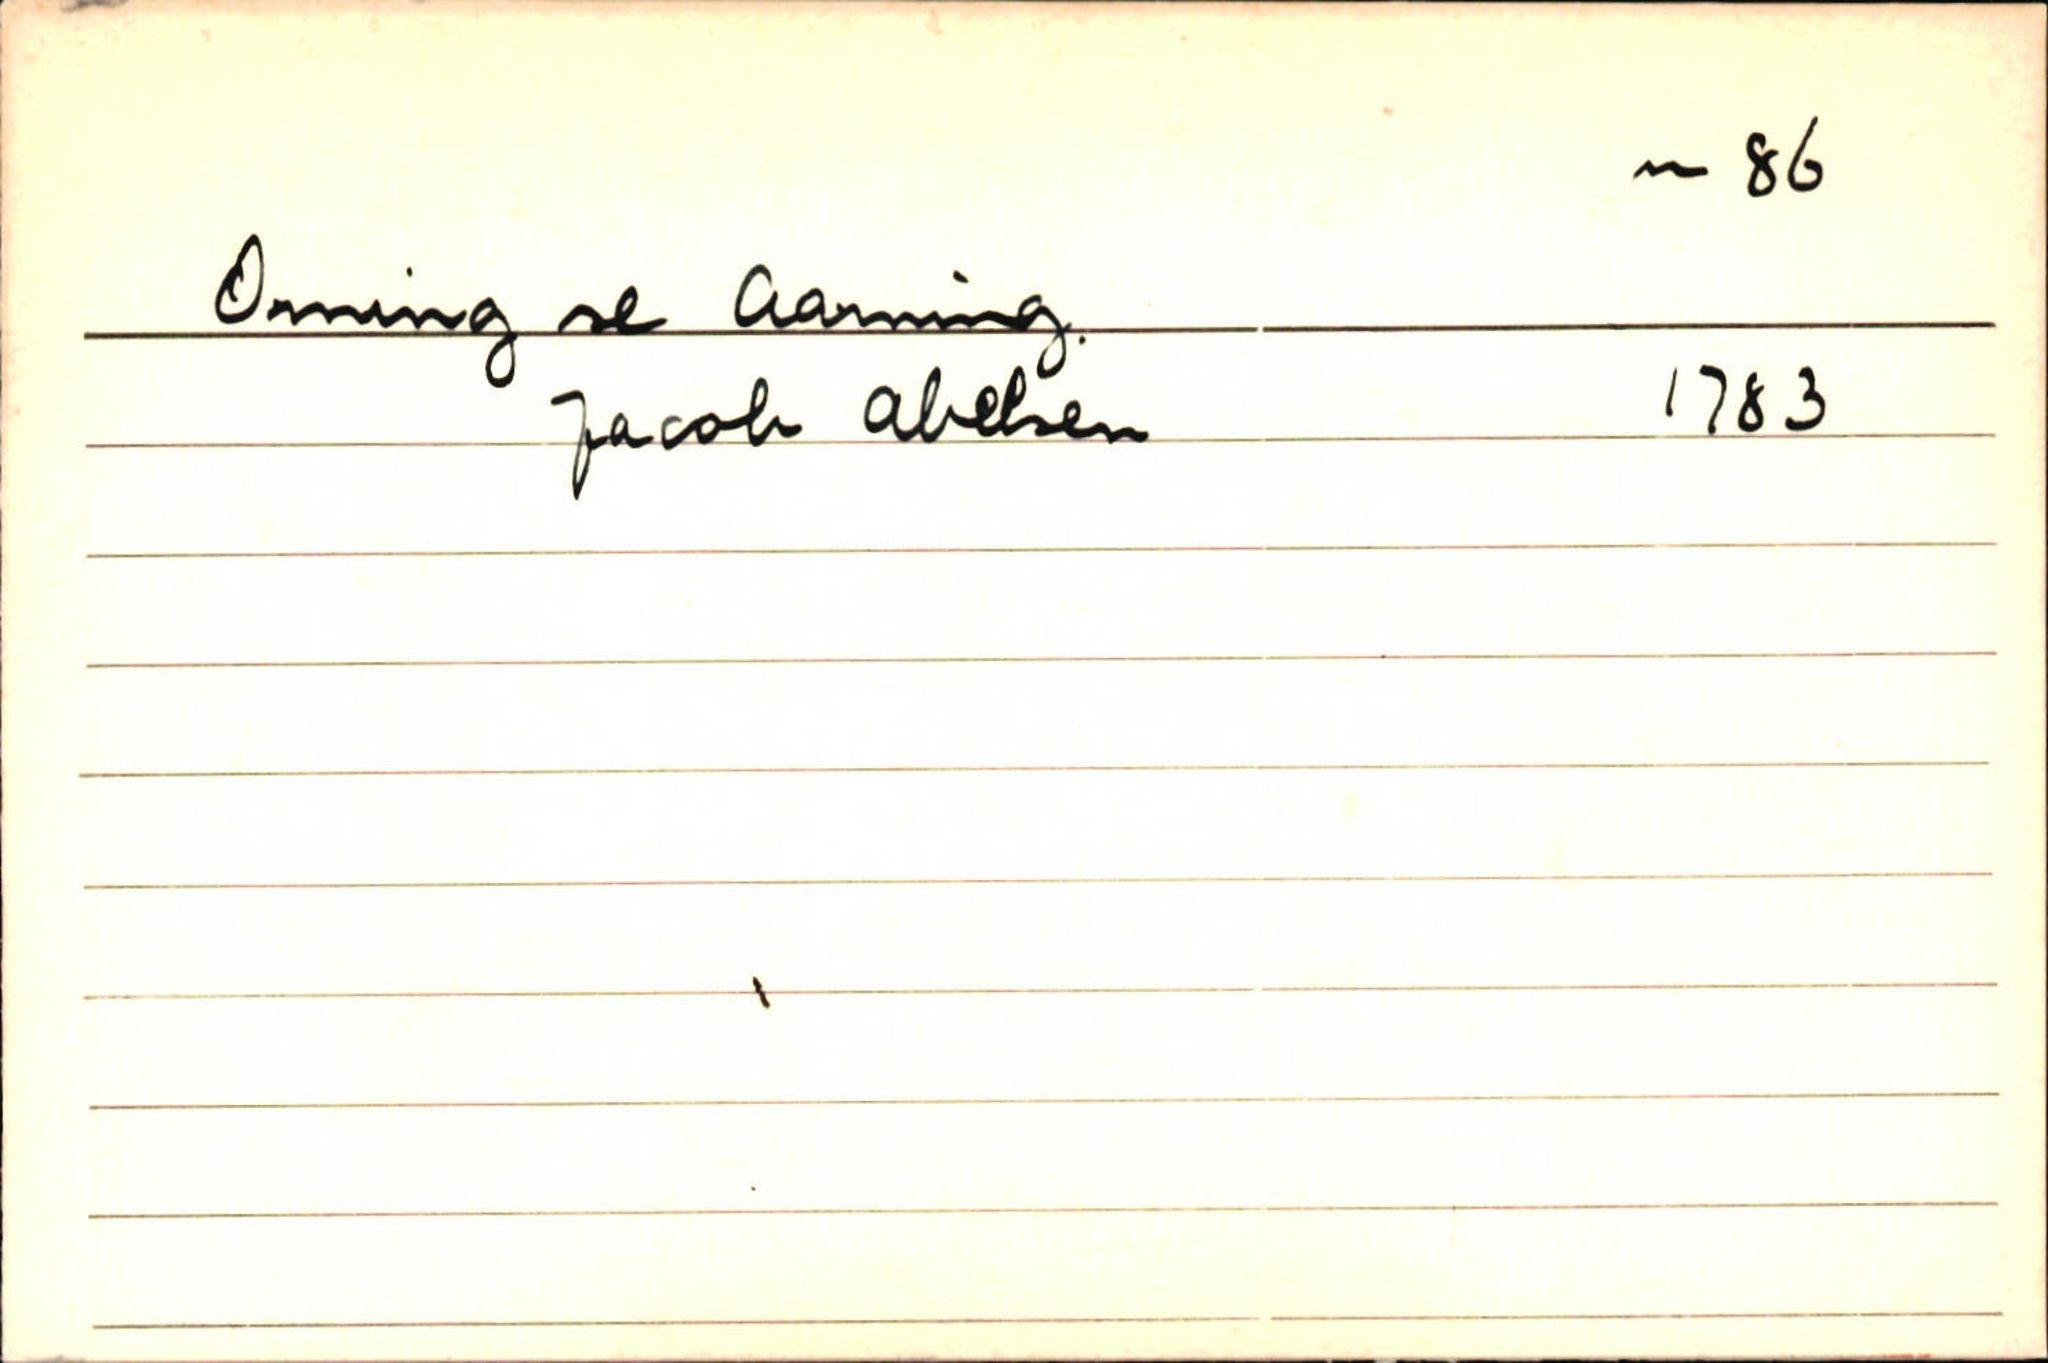 n 86
Orning se Aarning.
Jacob Abelsen 1783